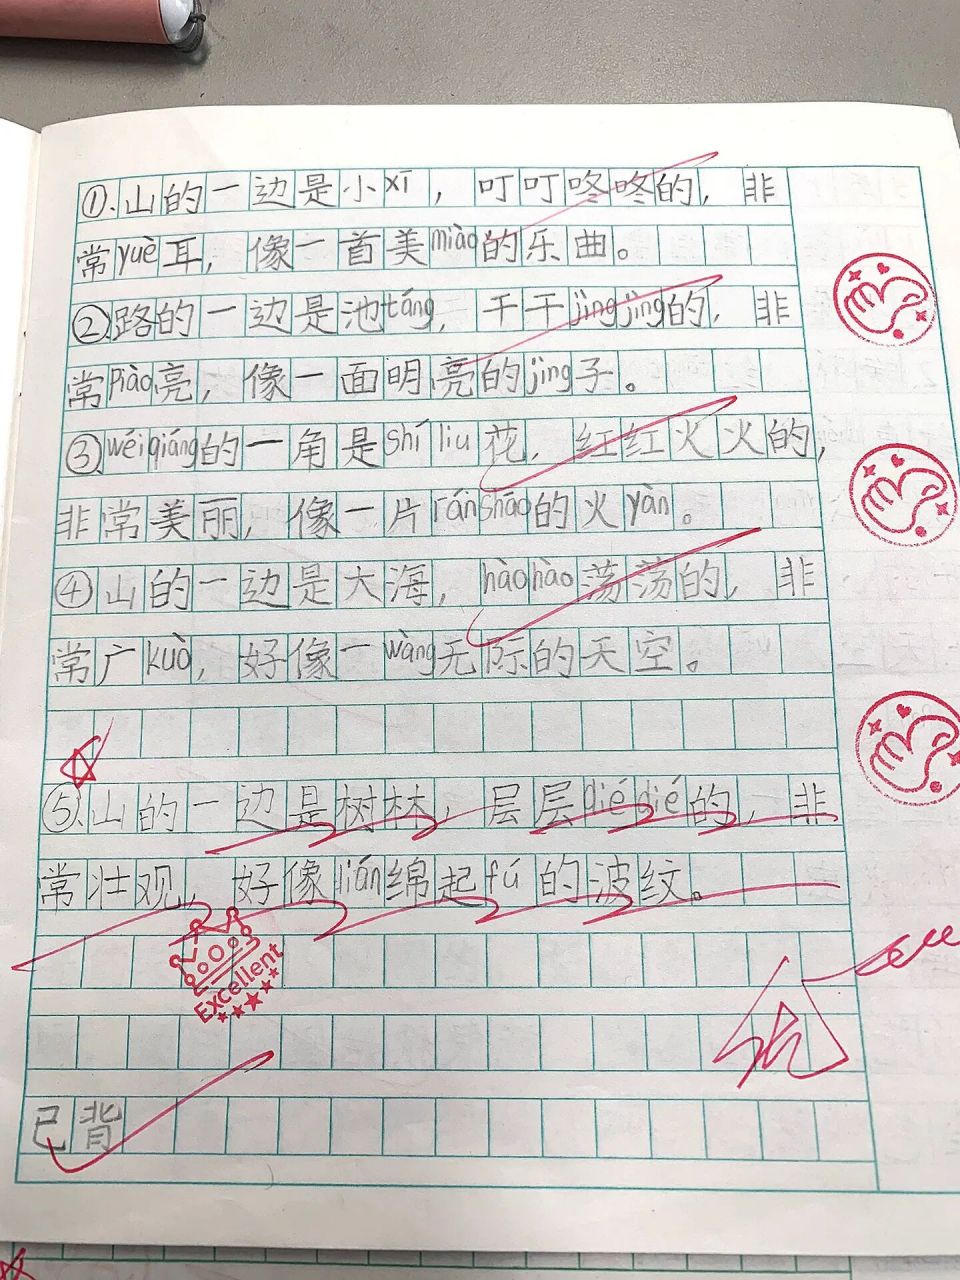 ①.山的一边是小xī，叮叮咚咚的，非
常yuè耳，像一首美miào的乐曲。
②路的一边是池táng，干干jìngjìng的，非
常piào亮，像一面明亮的jìng子。
③wéiqiáng的一角是shíliu花，红红火火的，
非常美丽，像一片ránshāo的火yàn。
④山的一边是大海，hàohào荡荡的，非
常广kuò，好像一wàng无际的天空。
⑤.山的一边是树林，层层diédié的，非
常壮观，好像lián绵起fú的波纹。
Excellent
优
已背